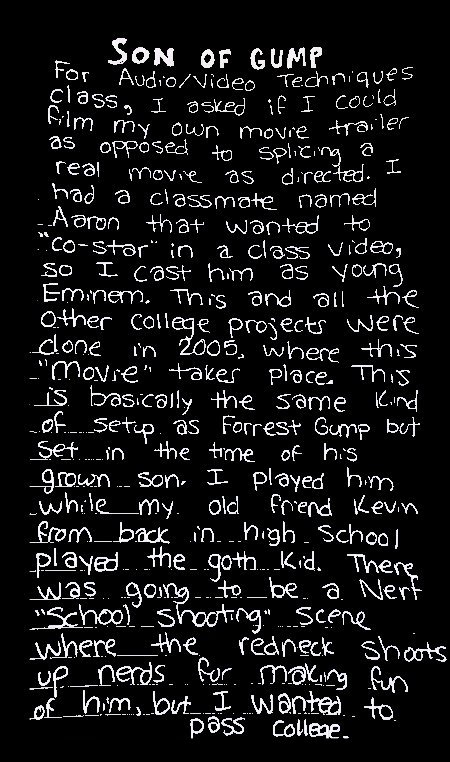 SON OF GUMP
For Audio/Video Techniques
class, I asked if I could
film my own movie trailer
as opposed to splicing a
real movie as directed. I
had a classmate named
Aaron that wanted to
"co-star" in a class video,
so I cast him as young
Eminem. This and all the
other college projects were
done in 2005, where this
"movie" takes place. This
is basically the same kind
of setup as Forrest Gump but
set in the time of his
grown son. I played him
while my old friend Kevin
from back in high school
played the goth kid. There
was going to be a Nerf
"School shooting" scene
where the redneck shoots
up nerds for making fun
of him, but I wanted to
pass college.